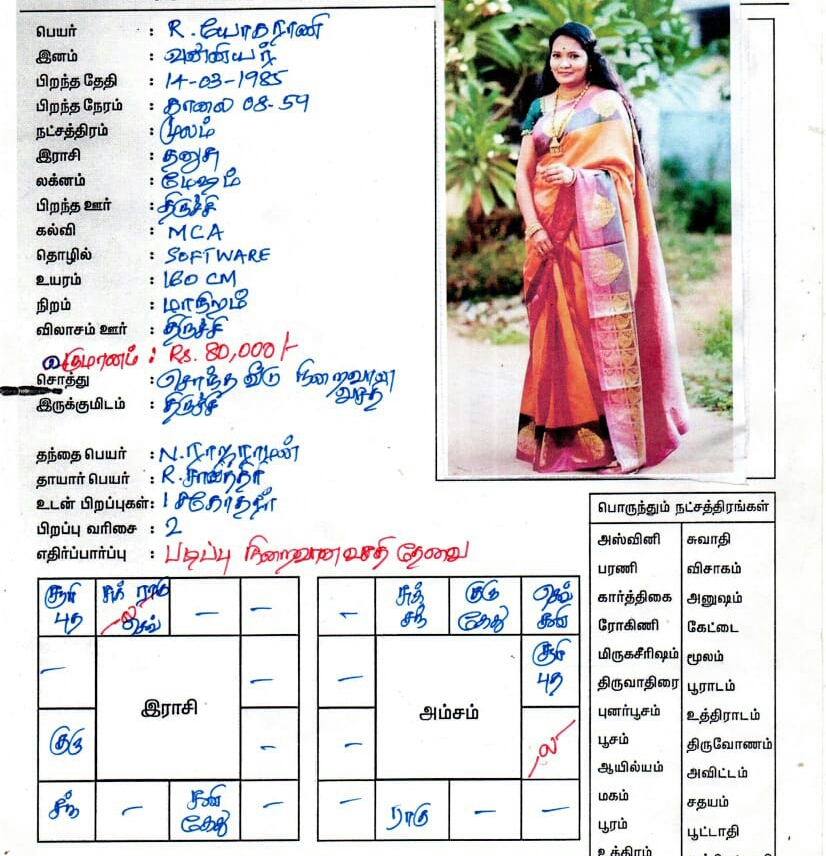 பெயர் : R. யோகராணி
இனம் : வன்னியர்
பிறந்த தேதி : 14-03-1985
பிறந்த நேரம் : காலை 08-59
நட்சத்திரம் : மூலம்
இராசி : தனுசு
லக்னம் : மேஷம்
பிறந்த ஊர் : திருச்சி
கல்வி : MCA
தொழில் : SOFTWARE
உயரம் : 160 CM
நிறம் : மாநிறம்
விலாசம் ஊர் : திருச்சி
வருமானம் : Rs. 80,000/-
சொத்து : சொந்த வீடு நிறைவான வசதி
இருக்குமிடம் : திருச்சி
தந்தை பெயர் : N.
தாயார் பெயர் : R. சாவித்திரி
உடன் பிறப்புகள் : 1
பிறப்பு வரிசை : 2
எதிர்ப்பார்ப்பு : படிப்பு நிறைவான வசதி தேவை
சூரி புத
சுக் ராகு
ல செவ்
—
—
—
—
இராசி
குரு
—
சந்
—
சனி கேது
—
—
சுக் சந்
குரு கேது
செவ் சனி
—
சூரி புத
அம்சம்
—
ல
—
ராகு
—
—
பொருந்தும் நட்சத்திரங்கள்
அஸ்வினி சுவாதி
பரணி விசாகம்
கார்த்திகை அனுஷம்
ரோகிணி கேட்டை
மிருகசீரிஷம் மூலம்
திருவாதிரை பூராடம்
புனர்பூசம் உத்திராடம்
பூசம் திருவோணம்
ஆயில்யம் அவிட்டம்
மகம் சதயம்
பூரம் பூட்டாதி
உத்திரம்